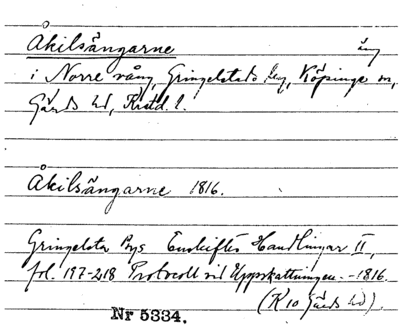 Å
Åkilsängarne äng
i Norre vång, Gringelstads by, Köpinge sn,
Gärds hd, Krstd. l.
Åkilsängarne 1816.
Gringelsta Bys Enskiftes Handlingar II,
fol. 197-218 Protocoll vid Uppskattningen - 1816.
(K 10 Gärds hd).
Nr 5334.